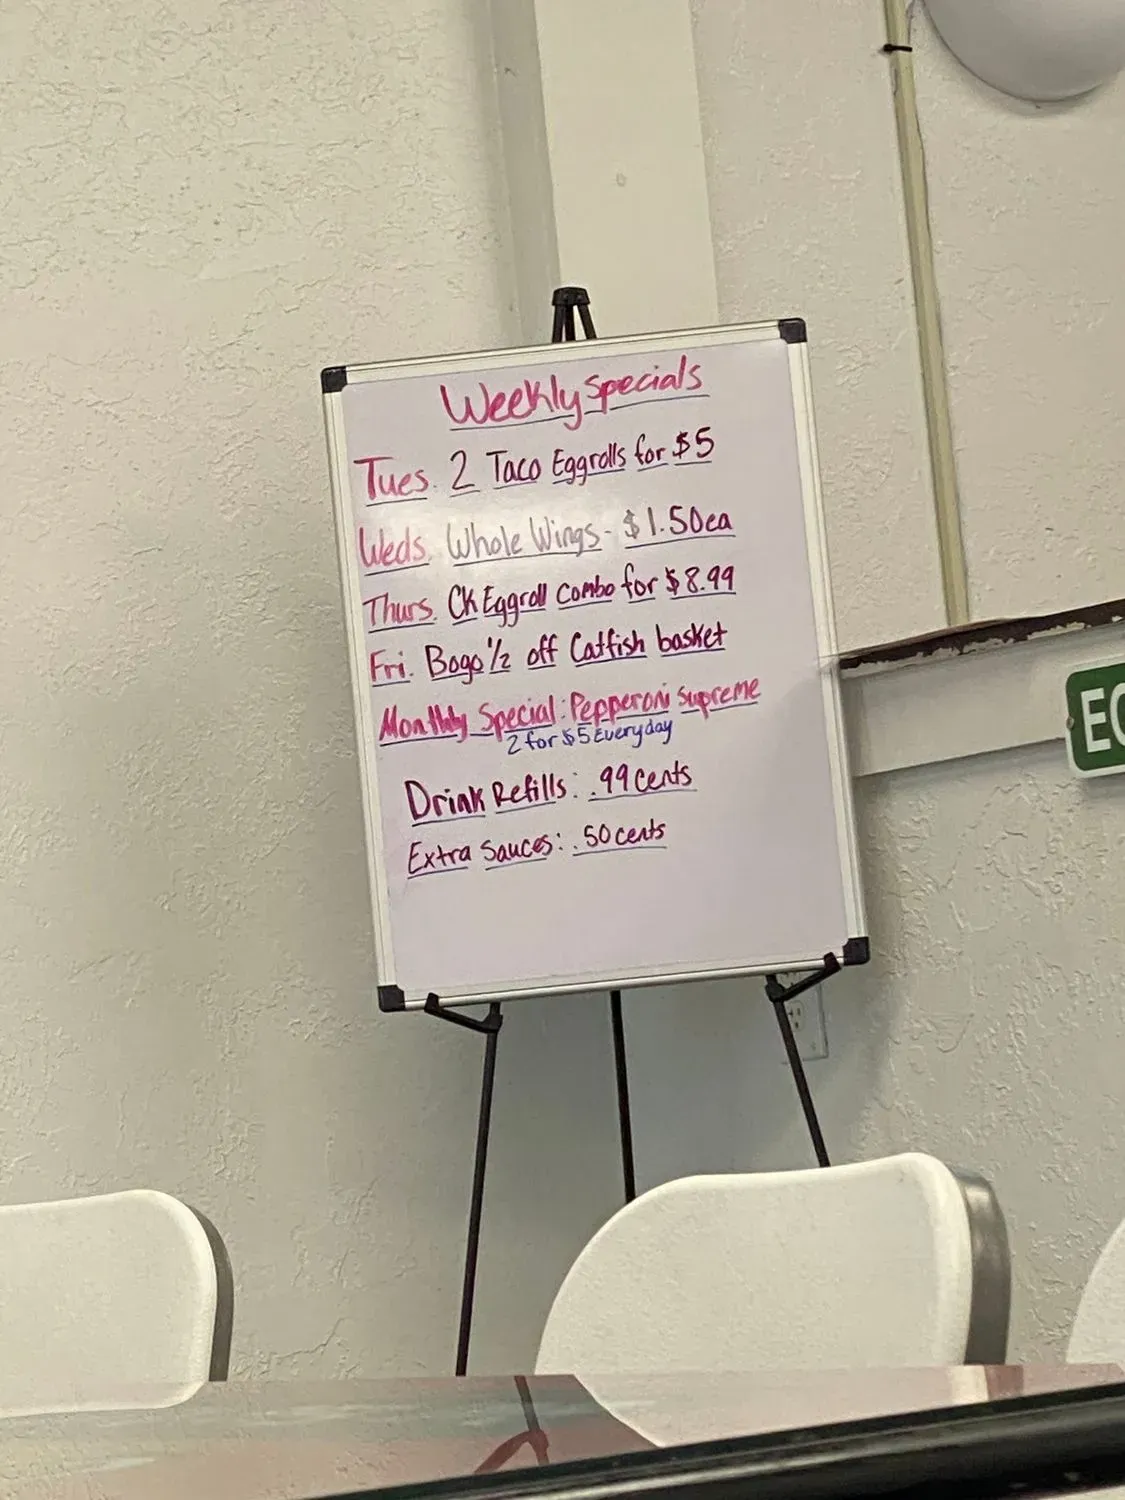 Weekly Specials
Tues. 2 Taco Eggrolls for $5
Weds. Whole Wings - $1.50ea
Thurs. CK Eggroll Combo for $8.99
Fri. Bogo 1/2 off Catfish basket
Monthly Special: Pepperoni Supreme
2 for $5 Everyday
Drink Refills: .99 cents
Extra Sauces: .50 cents